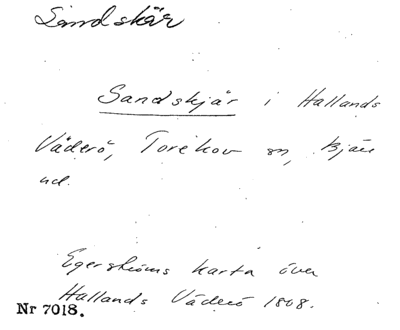 Sandskär
Sandskjär i Hallands
Väderö, Torekov sn, Bjäre
hd.
Egerströms karta över
Hallands Väderö 1808.
Nr 7018.